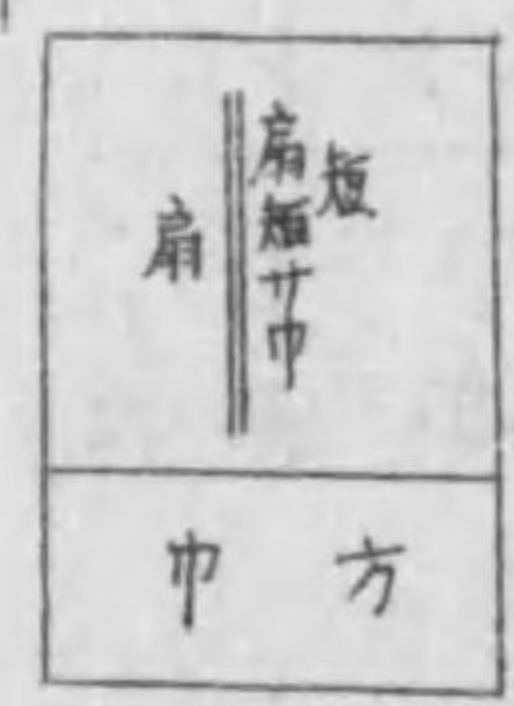 短
扇短サ巾
扇
方
巾